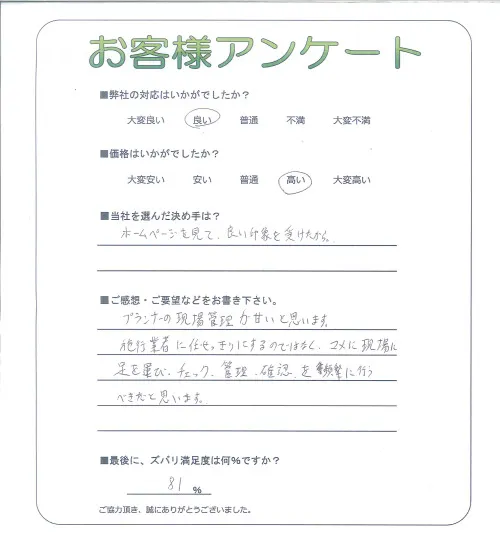 お客様アンケート
■弊社の対応はいかがでしたか？
大変良い 良い 普通 不満 大変不満
■価格はいかがでしたか？
大変安い 安い 普通 高い 大変高い
■当社を選んだ決め手は？
ホームページを見て、良い印象を受けたから。
■ご感想・ご要望などをお書き下さい。
プランナーの現場管理が甘いと思います
施行業者に任せっきりにするのではなく、コマメに現場に
足を運び、チェック、管理、確認を頻繁に行う
べきだと思います。
■最後に、ズバリ満足度は何%ですか？
81 %
ご協力頂き、誠にありがとうございました。